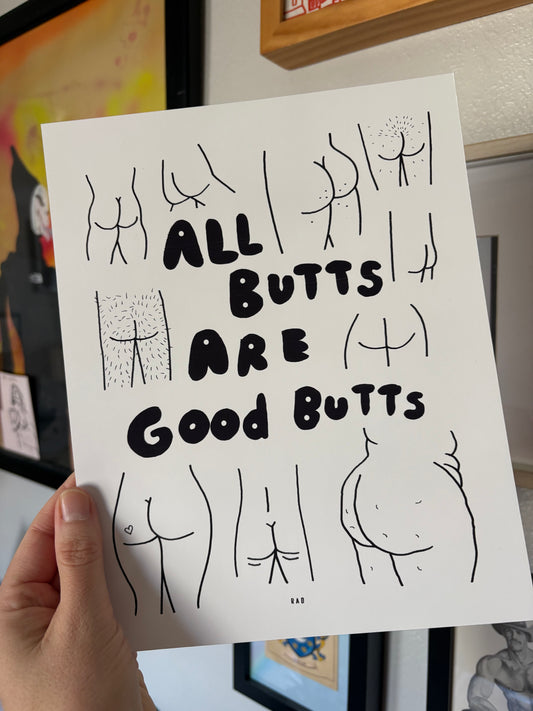 ALL
BUTTS
ARE
GOOD BUTTS
RAD